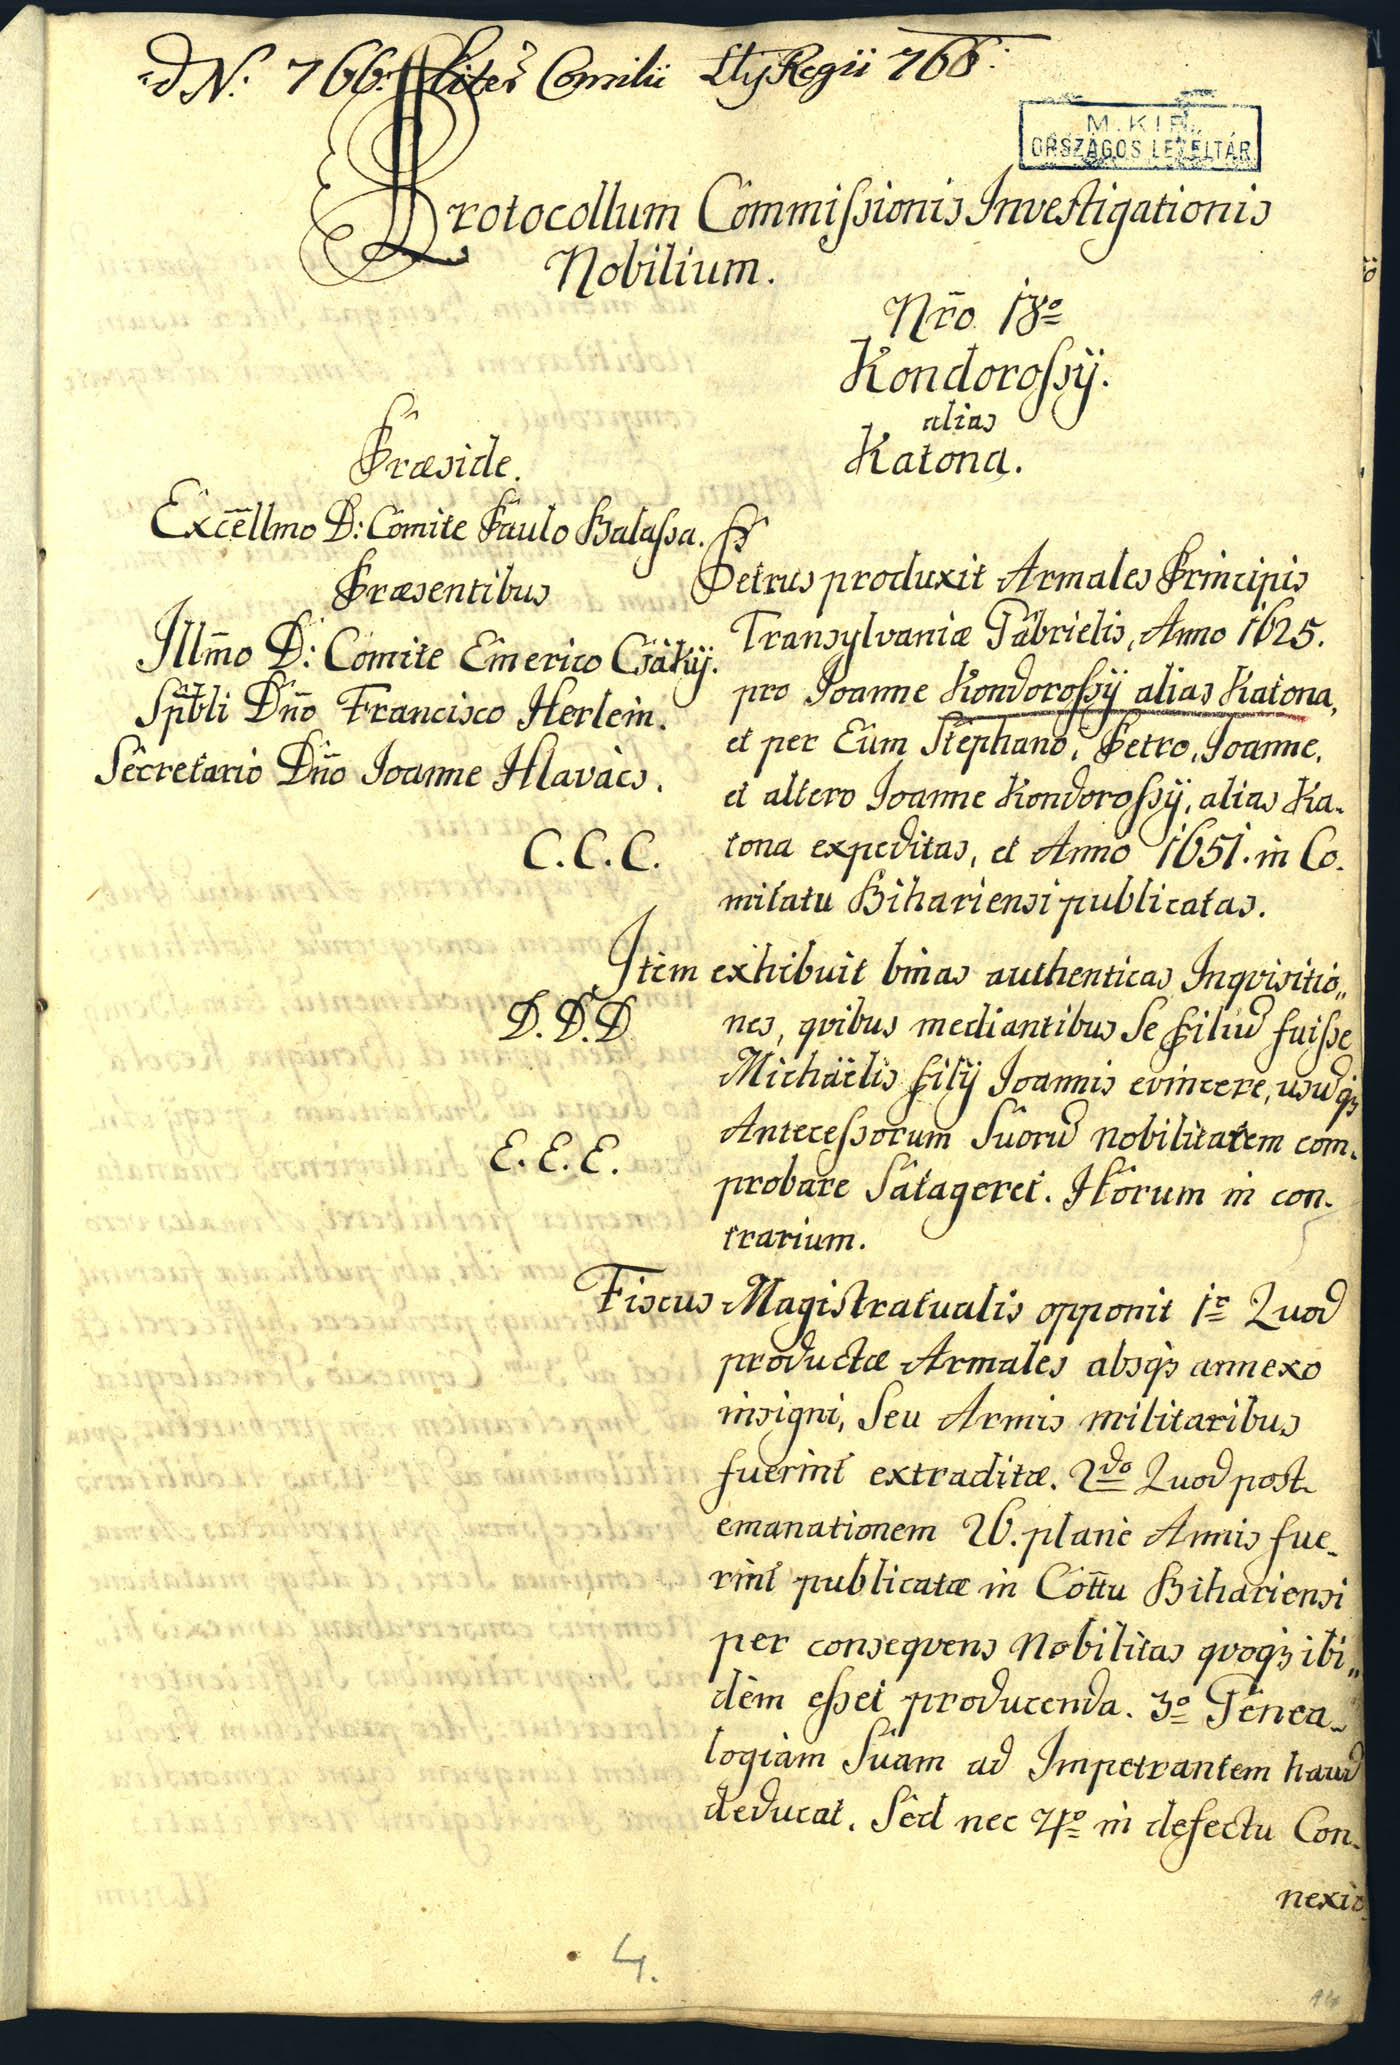 ad N. 766. Lites Consilii Ltij Regii 766.
M. KIR.
ORSZÁGOS LEVÉLTÁR
Protocollum Commissionis Investigationis
Nobilium.
Nr̃o 18º
Kondorossÿ.
alias
Katona.
Præside.
Excell̃mo D: Comite Paulo Balassa.
Præsentibus
Illm̃o D: Comite Emerico Csákÿ.
Sp̃bli Dño Francisco Herlein.
Secretario Dño Joanne Hlavács.
C. C. C.
D. D. D
E. E. E.
Petrus produxit Armales Principis
Transylvaniæ Gabrielis, Anno 1625.
pro Joanne Kondorossÿ alias Katona,
et per Eum Stephano, Petro, Joanne,
et altero Joanne Kondorossÿ, alias Ka-
tona expeditas, et Anno 1651. in Co-
mitatu Bihariensi publicatas.
Item exhibuit binas authenticas Inqvisitio„
nes, qvibus mediantibus Se Filiũ fuisse
Michaëlis Filÿ Joannis evincere, usũqꝫ
Antecessorum Suorũ nobilitatem com-
probare Satageret. Horum in con-
trarium.
Fiscus Magistratualis opponit 1º Quod
productæ Armales absqꝫ annexo
insigni, Seu Armis militaribus
fuerint extraditæ. 2do Quod post
emanationem 26. plane Annis fue-
rint publicatæ in Cottu Bihariensi
per conseqvens Nobilitas qvoqꝫ ibi„
dem esset producenda. 3º Genea-
logiam Suam ad Impetrantem haud
deducat. Sed nec 4º in defectu Con-
nexio
4.